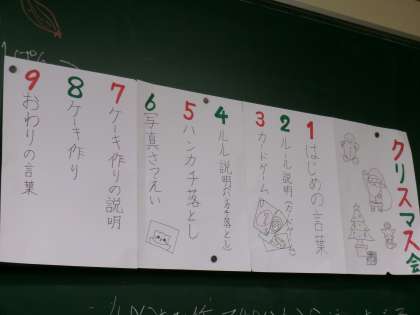 クリスマス会
1 はじめの言葉
2 ルール説明(カードゲーム)
3 カードゲーム
4 ルール説明(ハンカチ落とし)
5 ハンカチ落とし
6 写真さつえい
7 ケーキ作りの説明
8 ケーキ作り
9 おわりの言葉